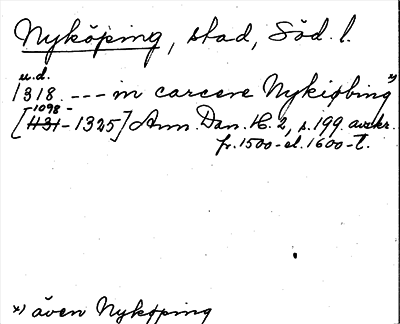 Nyköping, stad, Söd. l.
u.d.
1318. --- in carcere Nykiøbing *)
1098 -
[1131 - 1325] Ann. Dan. H. 2, s. 199. avskr.
fr. 1500- el. 1600-t.
*) även Nykøping